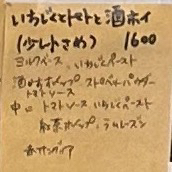 いちじくとトマトと酒ホイ
(少し小さめ) 1600
ミルクベース、いちじくペースト
酒かすホイップ ストロベリーパウダー
トマトソース
中に トマトソース いちじくペースト
紅茶ホイップ、ラムレーズン
赤サングリア